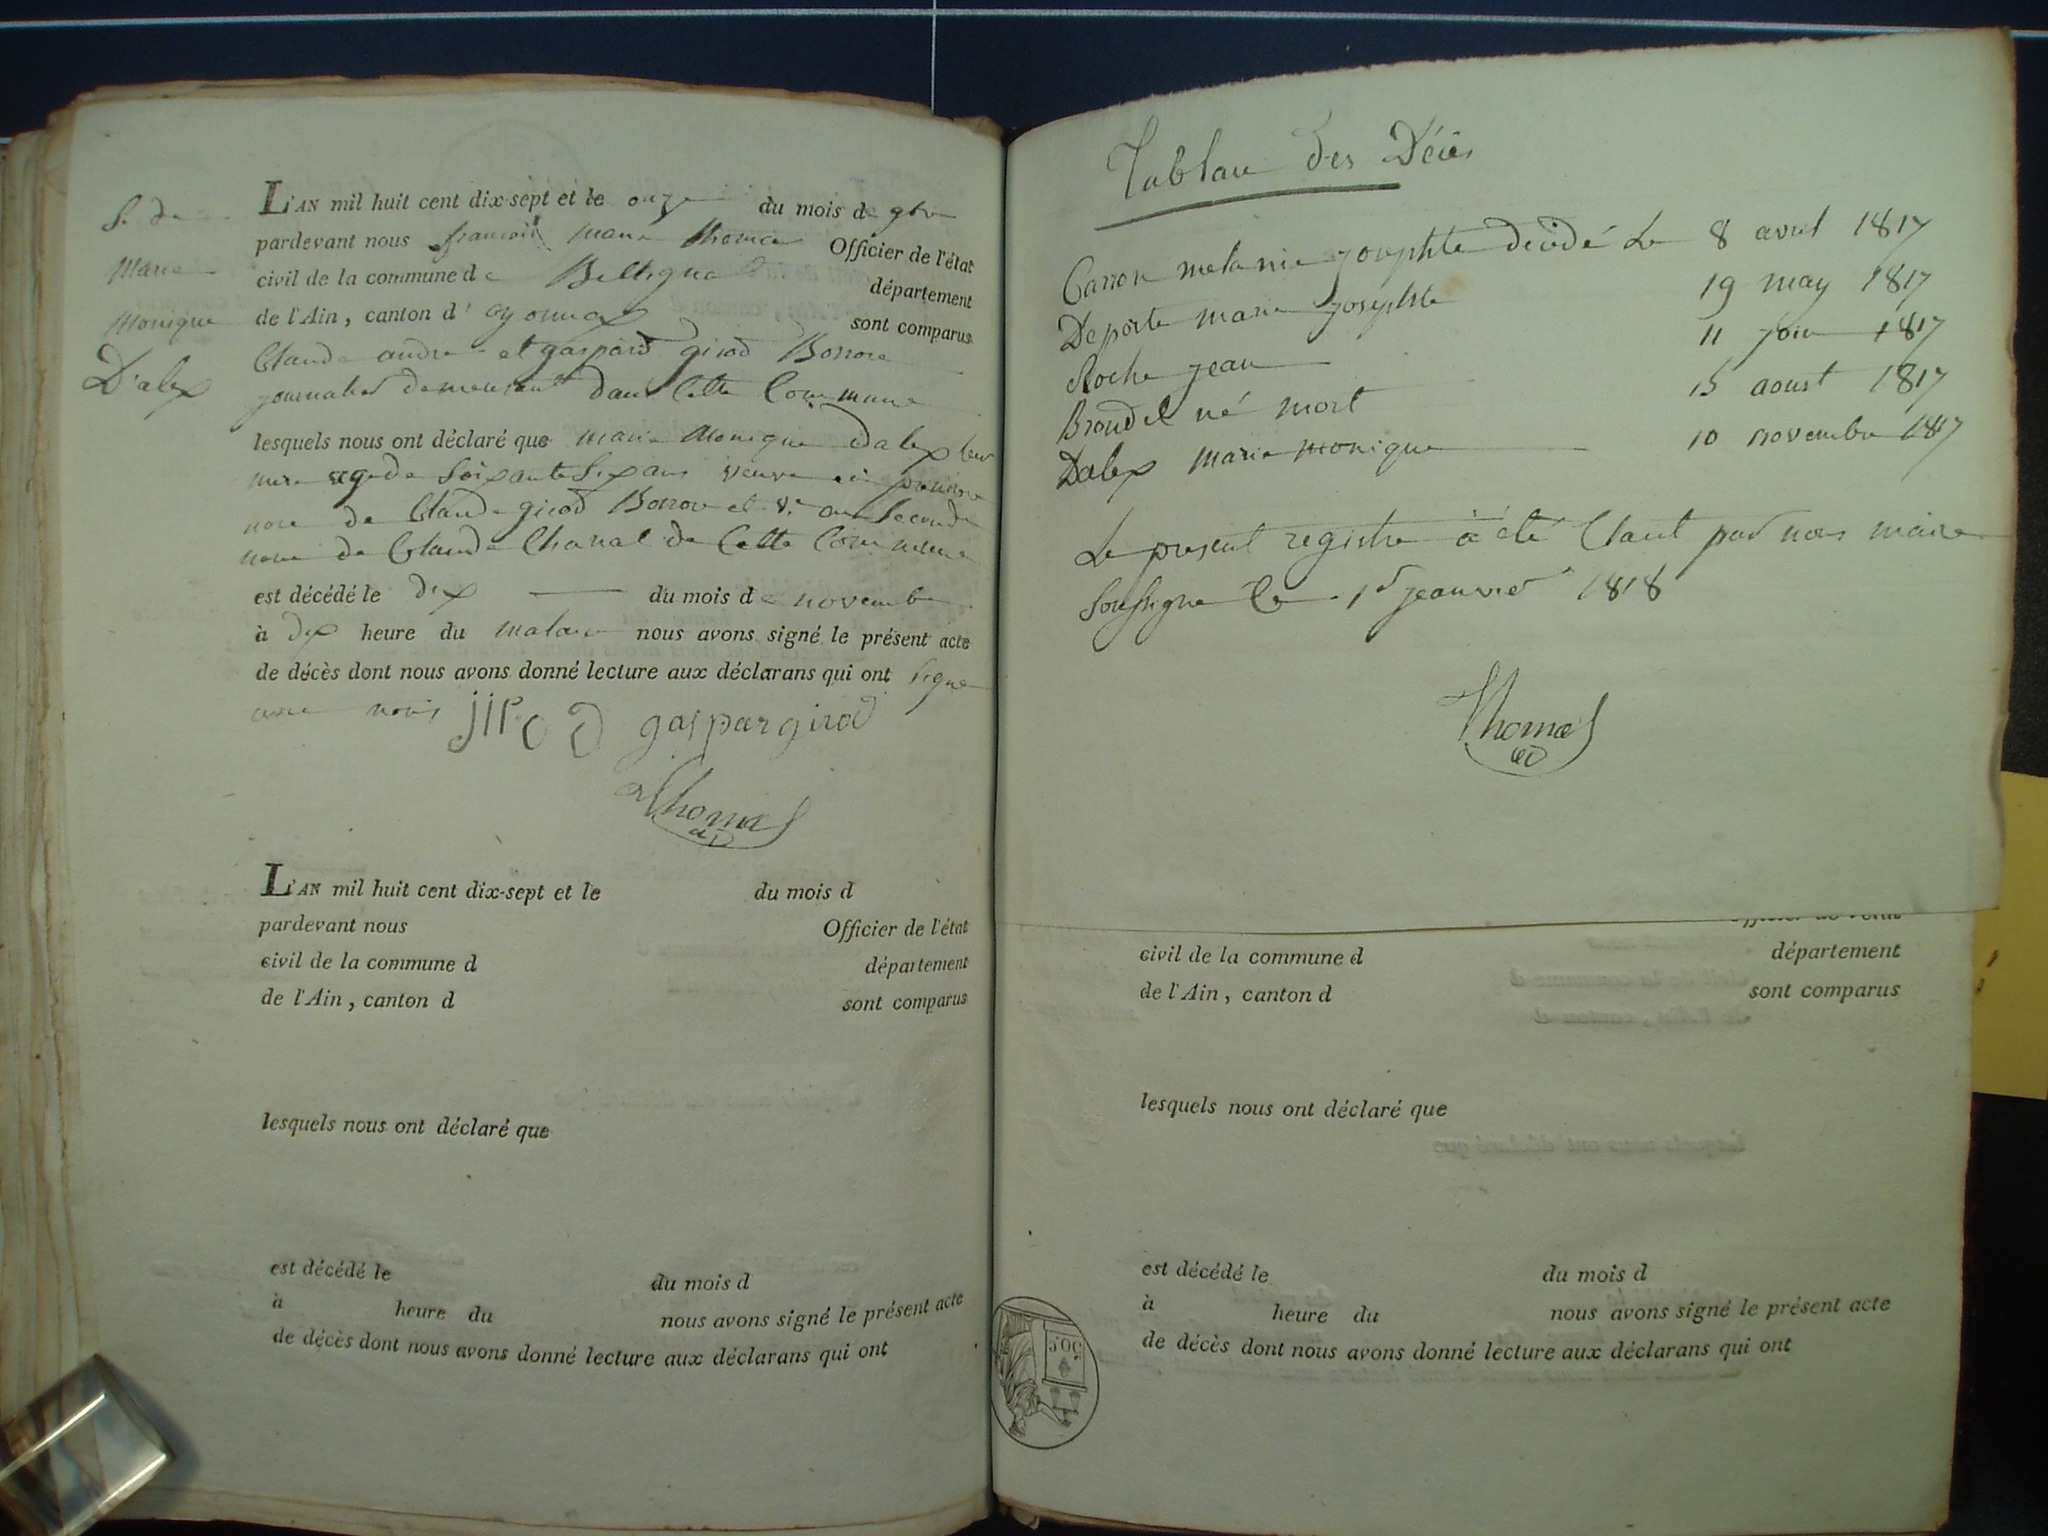 Marie
Monique
D'alex
L'AN mil huit cent dix-sept et le onze du mois de 9bre
pardevant nous françois marie thomas Officier de l'état
civil de la commune de Bellignat département
de l'Ain, canton d'oyonnax sont comparus
Claude andre et gaspard girod Borron
journalier demeurant dans Cette Commune
lesquels nous ont déclaré que marie Monique Dalex leur
mere agede soixante six ans veuve en premiere
noce de Claude girod Borron et en Seconde
noce de Claude Chanal de Cette Commune
est décédé le dix du mois de novembre
à dix heure du matin nous avons signé le présent acte
de décès dont nous avons donné lecture aux déclarans qui ont signé
avec nous jirod gaspar girod
Thomas
L'AN mil huit cent dix-sept et le du mois d
pardevant nous Officier de l'état
civil de la commune d département
de l'Ain, canton d sont comparus
lesquels nous ont déclaré que
est décédé le du mois d
à heure du nous avons signé le présent acte
de décès dont nous avons donné lecture aux déclarans qui ont
Tableau des Décés
Carron melanie josephte décédé Le 8 avril 1817
Deporte marie josephte 19 may 1817
Roche jean 11 join 1817
Brondel né mort 15 aoust 1817
Dalex marie monique 10 novembre 1817
Le present registre à été Claut par nous maire
soussigne Ce 1er jeanvier 1818
Thomas
civil de la commune d département
de l'Ain, canton d sont comparus
lesquels nous ont déclaré que
est décédé le du mois d
à heure du nous avons signé le présent acte
de décès dont nous avons donné lecture aux déclarans qui ont